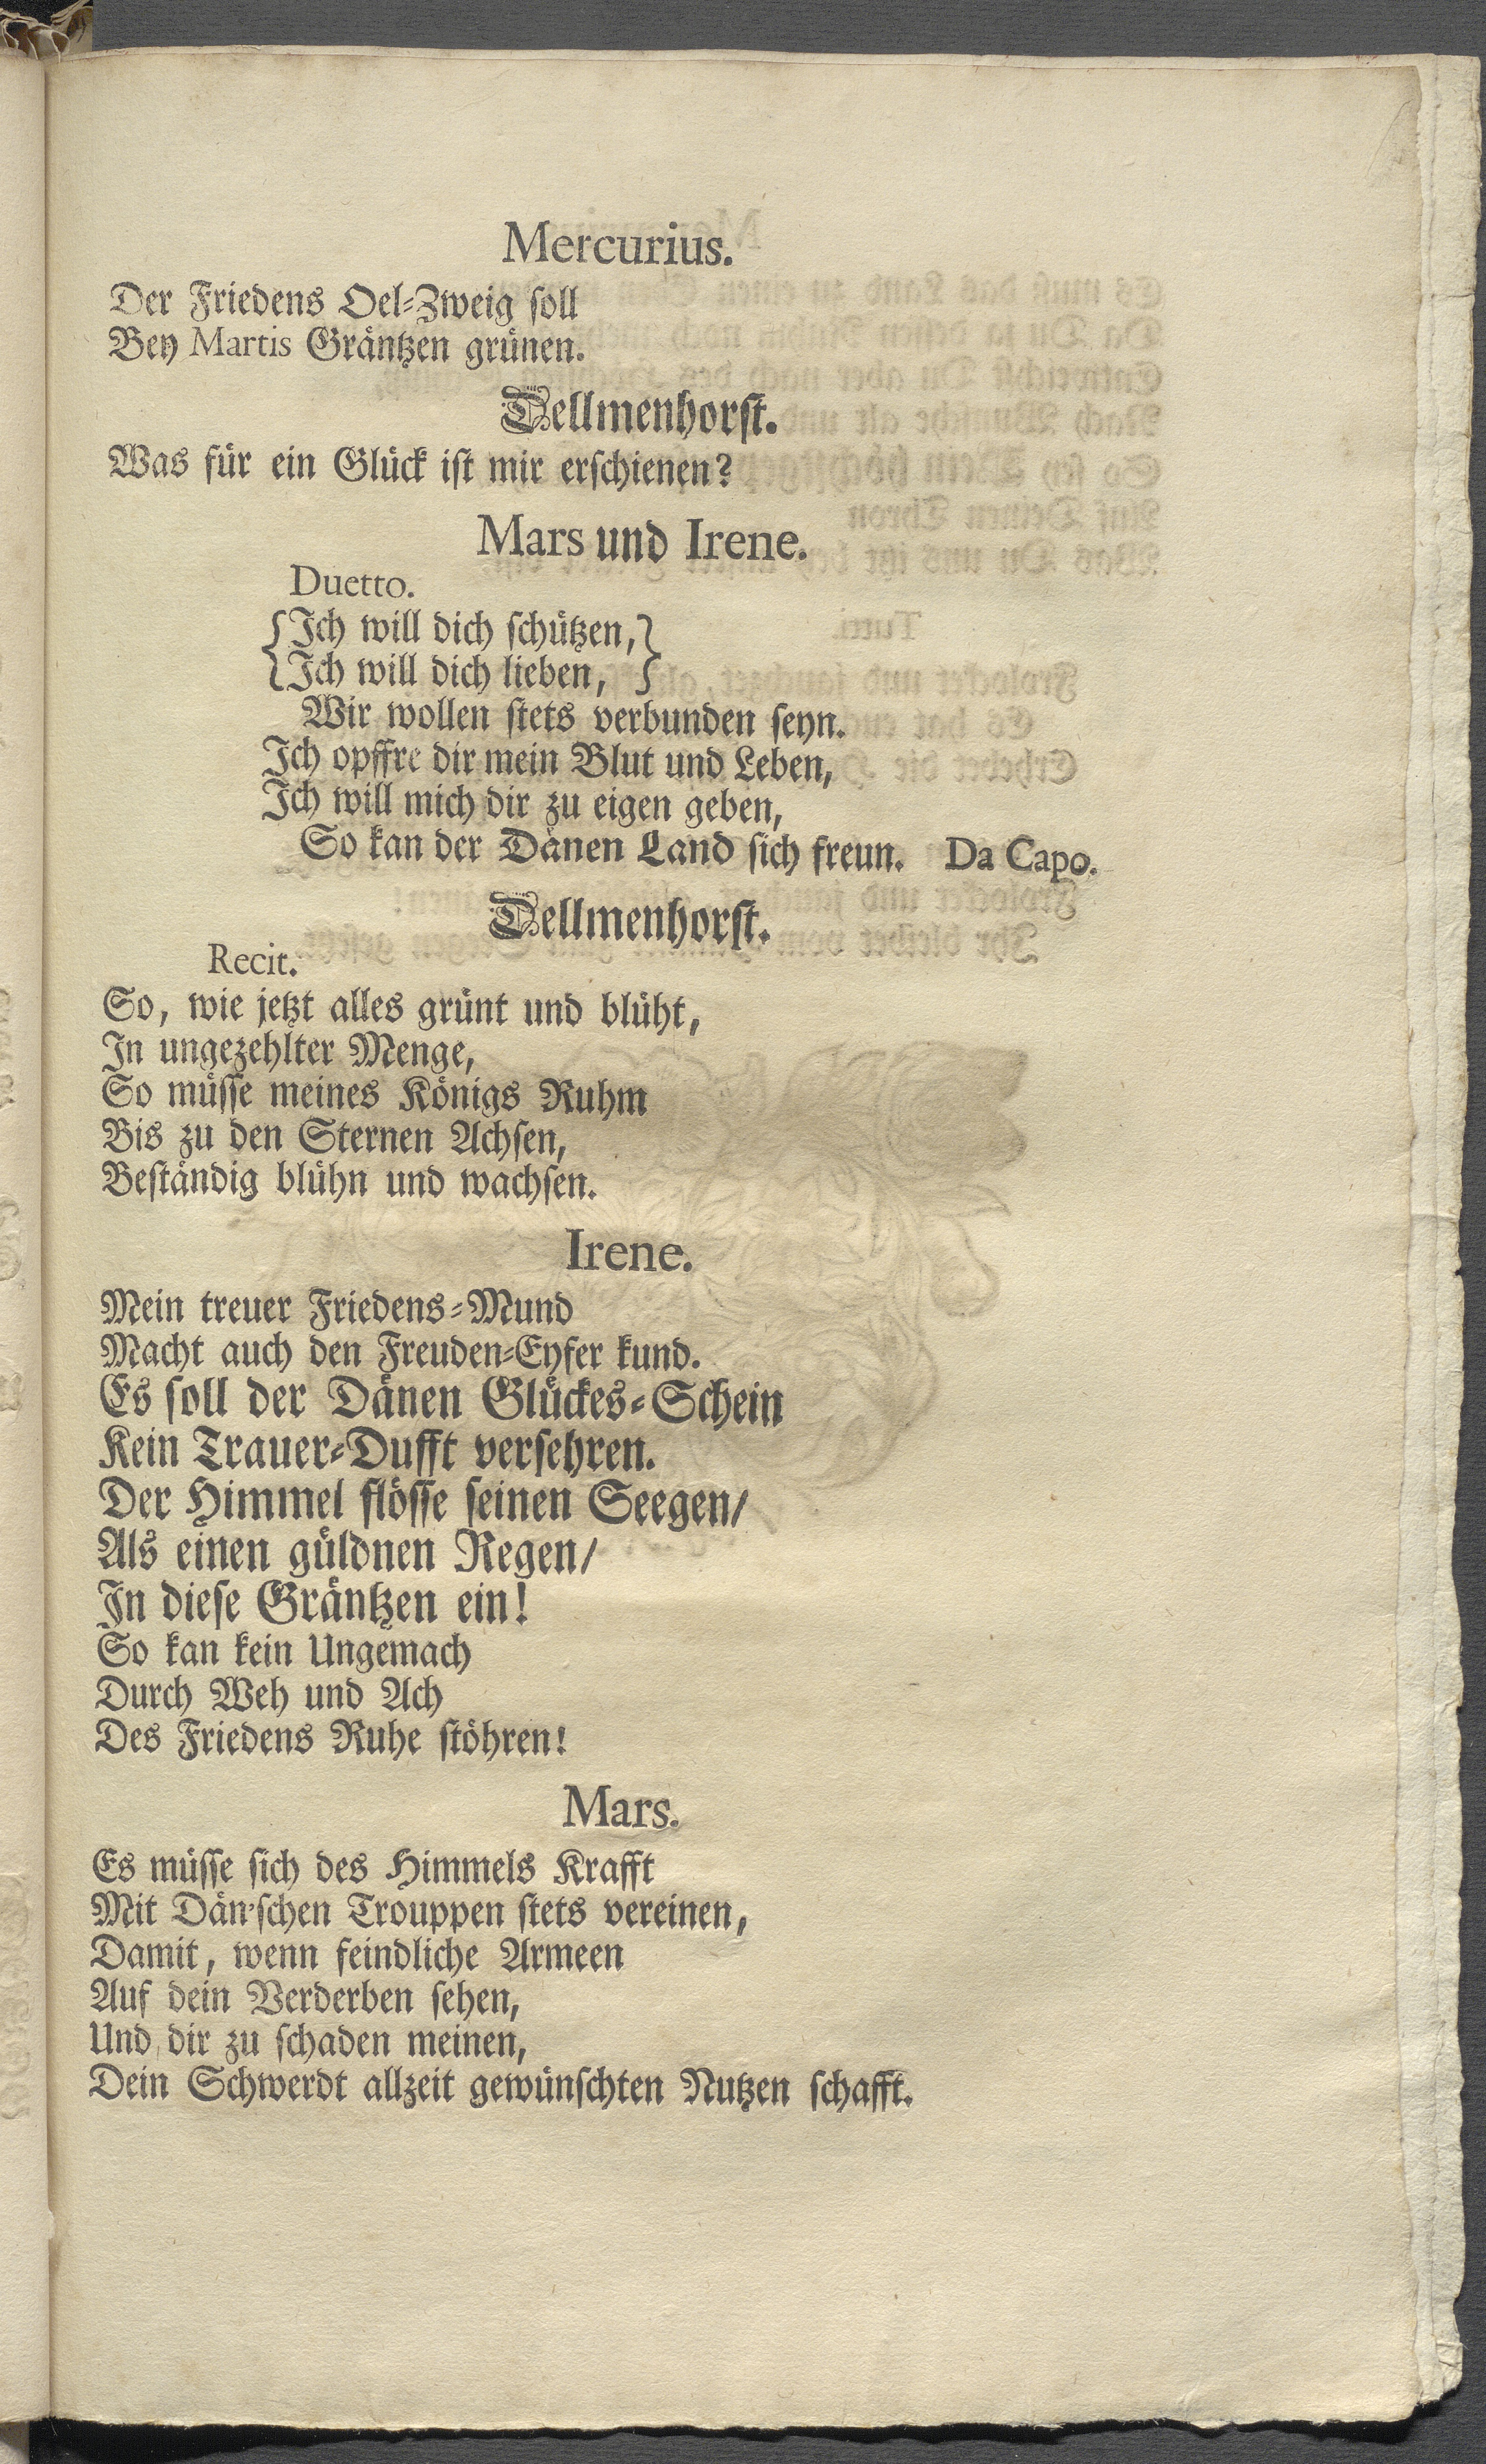 Mercurius.
Der Friedens Oel-Zweig soll
Bey Martis Gräntzen grünen.
Dellmenhorst.
Was für ein Glück ist mir erschienen?
Mars und Irene.
Duetto.
{Ich will dich schützen,}
{Ich will dich lieben, }
Wir wollen stets verbunden seyn.
Ich opffre dir mein Blut und Leben,
Ich will mich dir zu eigen geben,
So kan der Dänen Land sich freun. Da Capo.
Dellmenhorst.
Recit.
So, wie jetzt alles grünt und blüht,
In ungezehlter Menge,
So müsse meines Königs Ruhm
Bis zu den Sternen Achsen,
Beständig blühn und wachsen.
Irene.
Mein treuer Friedens-Mund
Macht auch den Freuden-Eyfer kund.
Es soll der Dänen Glückes-Schein
Kein Trauer-Dufft versehren.
Der Himmel flösse seinen Seegen/
Als einen güldnen Regen/
In diese Gräntzen ein!
So kan kein Ungemach
Durch Weh und Ach
Des Friedens Ruhe stöhren!
Mars.
Es müsse sich des Himmels Krafft
Mit Dän'schen Trouppen stets vereinen,
Damit, wenn feindliche Armeen
Auf dein Verderben sehen,
Und dir zu schaden meinen,
Dein Schwerdt allzeit gewünschten Nutzen schafft.